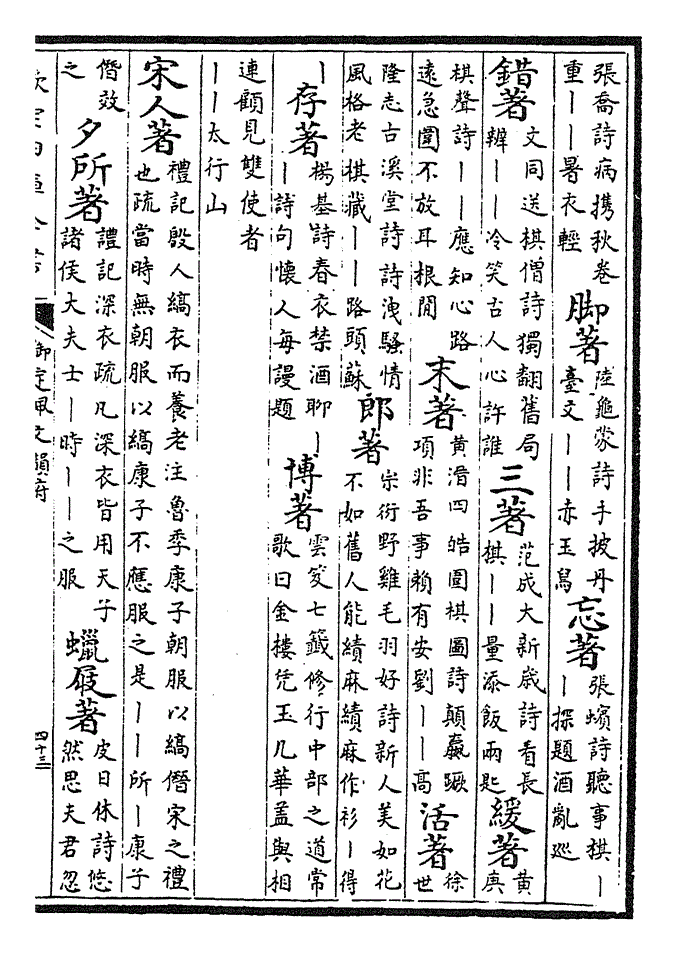 張喬詩病攜秋卷
重丨丨暑衣輕
脚著
陸龜蒙詩手披丹
臺文丨丨赤玉舄
忘著
張蠙詩聽事棋丨
丨探題酒亂巡
錯著
文同送棋僧詩獨翻舊局
辨丨丨冷笑古人心許誰
三著
范成大新歲詩看長
棋丨丨量添飯兩匙
緩著
黃
庾
棋聲詩丨丨應知心路
遠急圍不放耳根閒
末著
黃溍四皓圍棋圖詩顛嬴蹶
項非吾事賴有安劉丨丨高
活著
徐
世
隆志古溪堂詩詩洩騷情
風格老棋藏丨丨路頭蘇
郎著
宗衍野雞毛羽好詩新人美如花
不如舊人能績麻績麻作衫丨得
丨
存著
楊基詩春衣禁酒聊丨
丨詩句懷人每謾題
博著
雲笈七籤修行中部之道常
歌曰金樓凭玉几華蓋與相
連顧見雙使者
丨丨太行山
宋人著
禮記殷人縞衣而養老注魯季康子朝服以縞僭宋之禮
也疏當時無朝服以縞康子不應服之是丨丨所丨康子
僭效
之
夕所著
禮記深衣疏凡深衣皆用天子
諸侯大夫士丨時丨丨之服
蠟屐著
皮日休詩悠
然思夫君忽
欽定四庫全書
御定佩文韻府
四十三